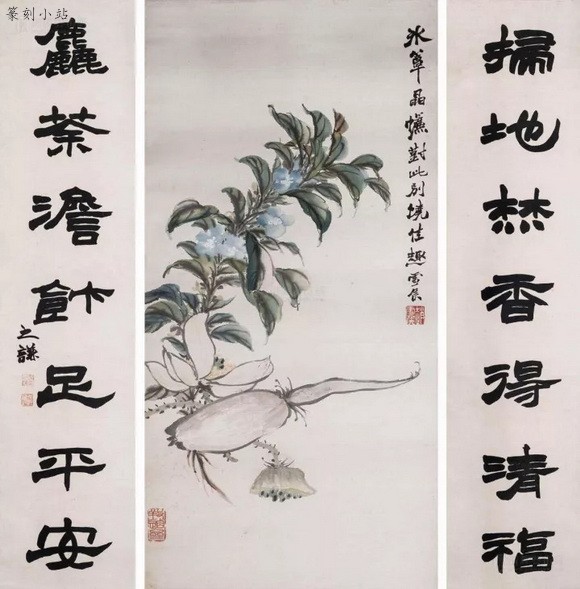 篆刻小站
掃地焚香得清福
冰簟晶對此別饒佳趣
麤茶澹飰足平安
之謙